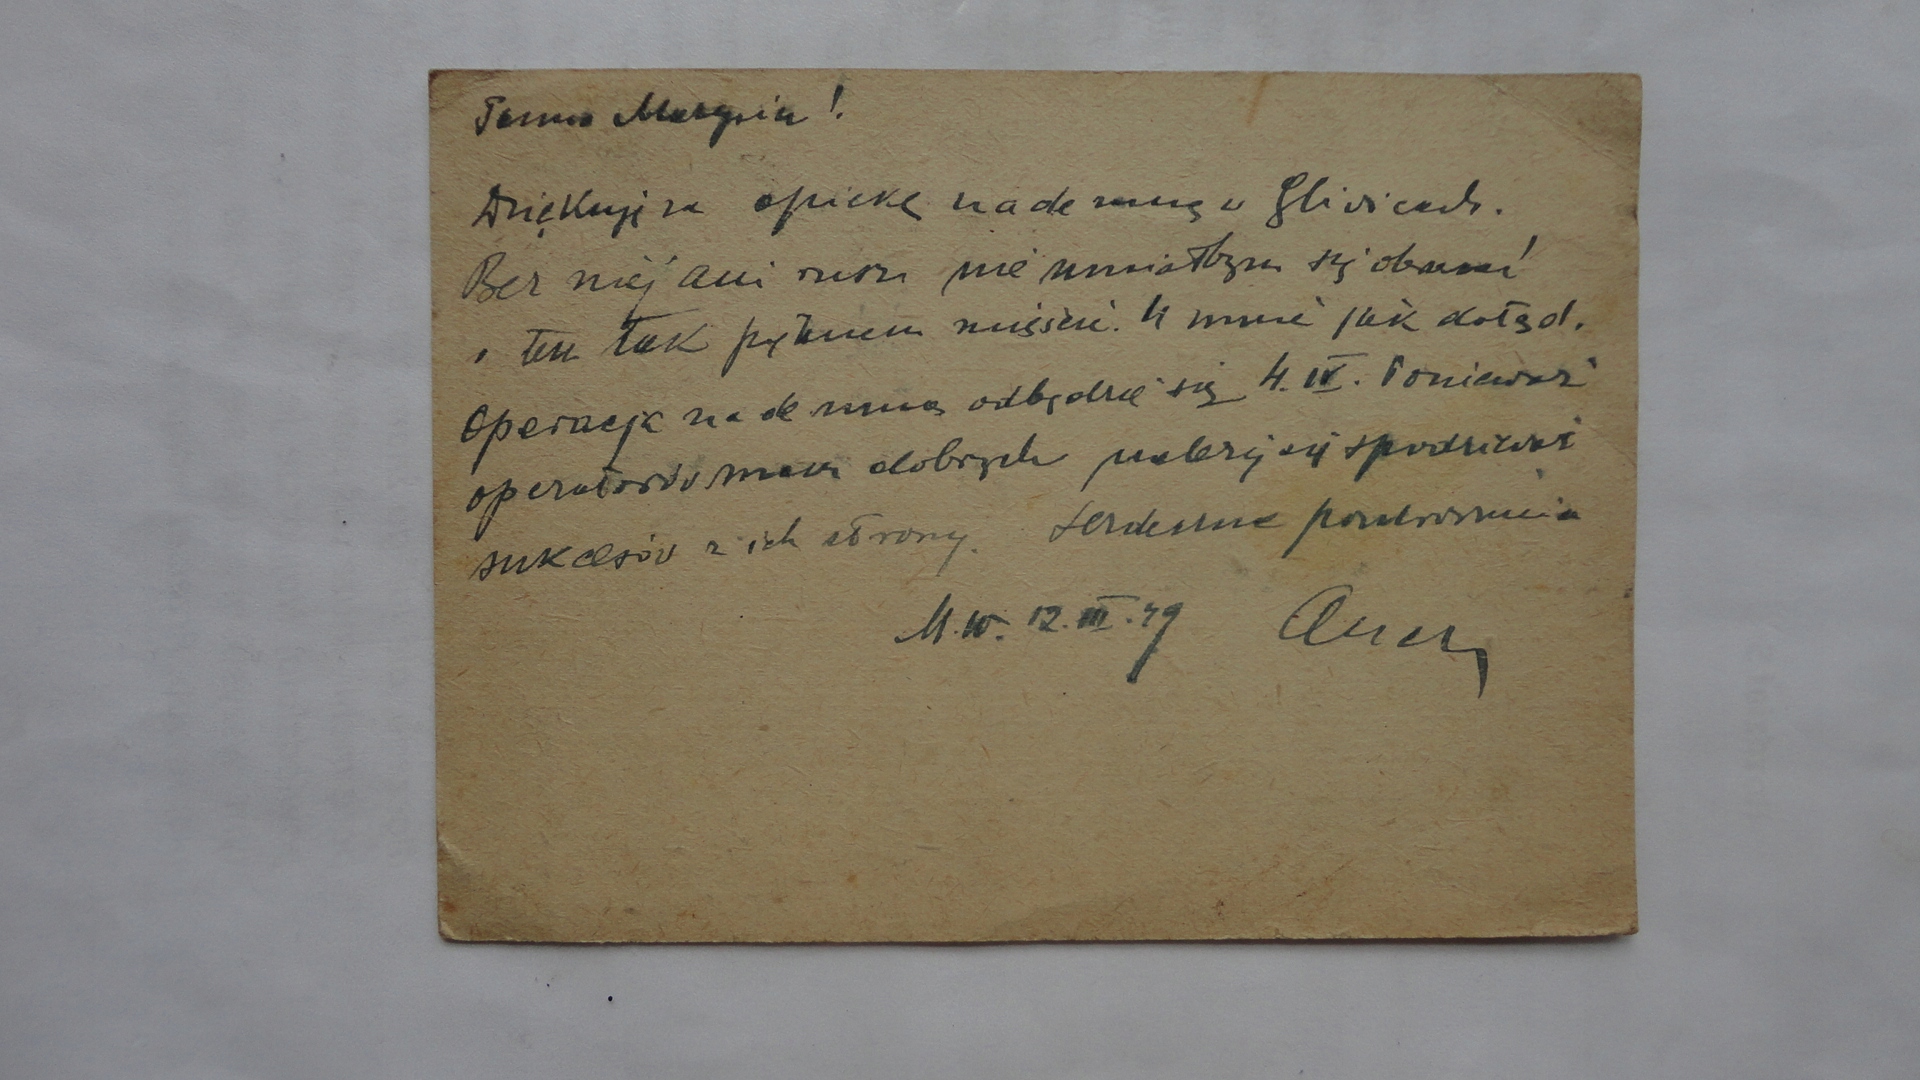 Panno Marysiu!
Dziękuję za opiekę nade mną w Gliwicach.
Bez niej ani rusz nie umiałbym się obracać
w tem tak pięknem mieście. U mnie jak dotąd.
Operacja nade mną odbędzie się 4. IV. Ponieważ
operatorów mam dobrych należy się spodziewać
sukcesów z ich strony. Serdeczne pozdrowienia
12.III.49